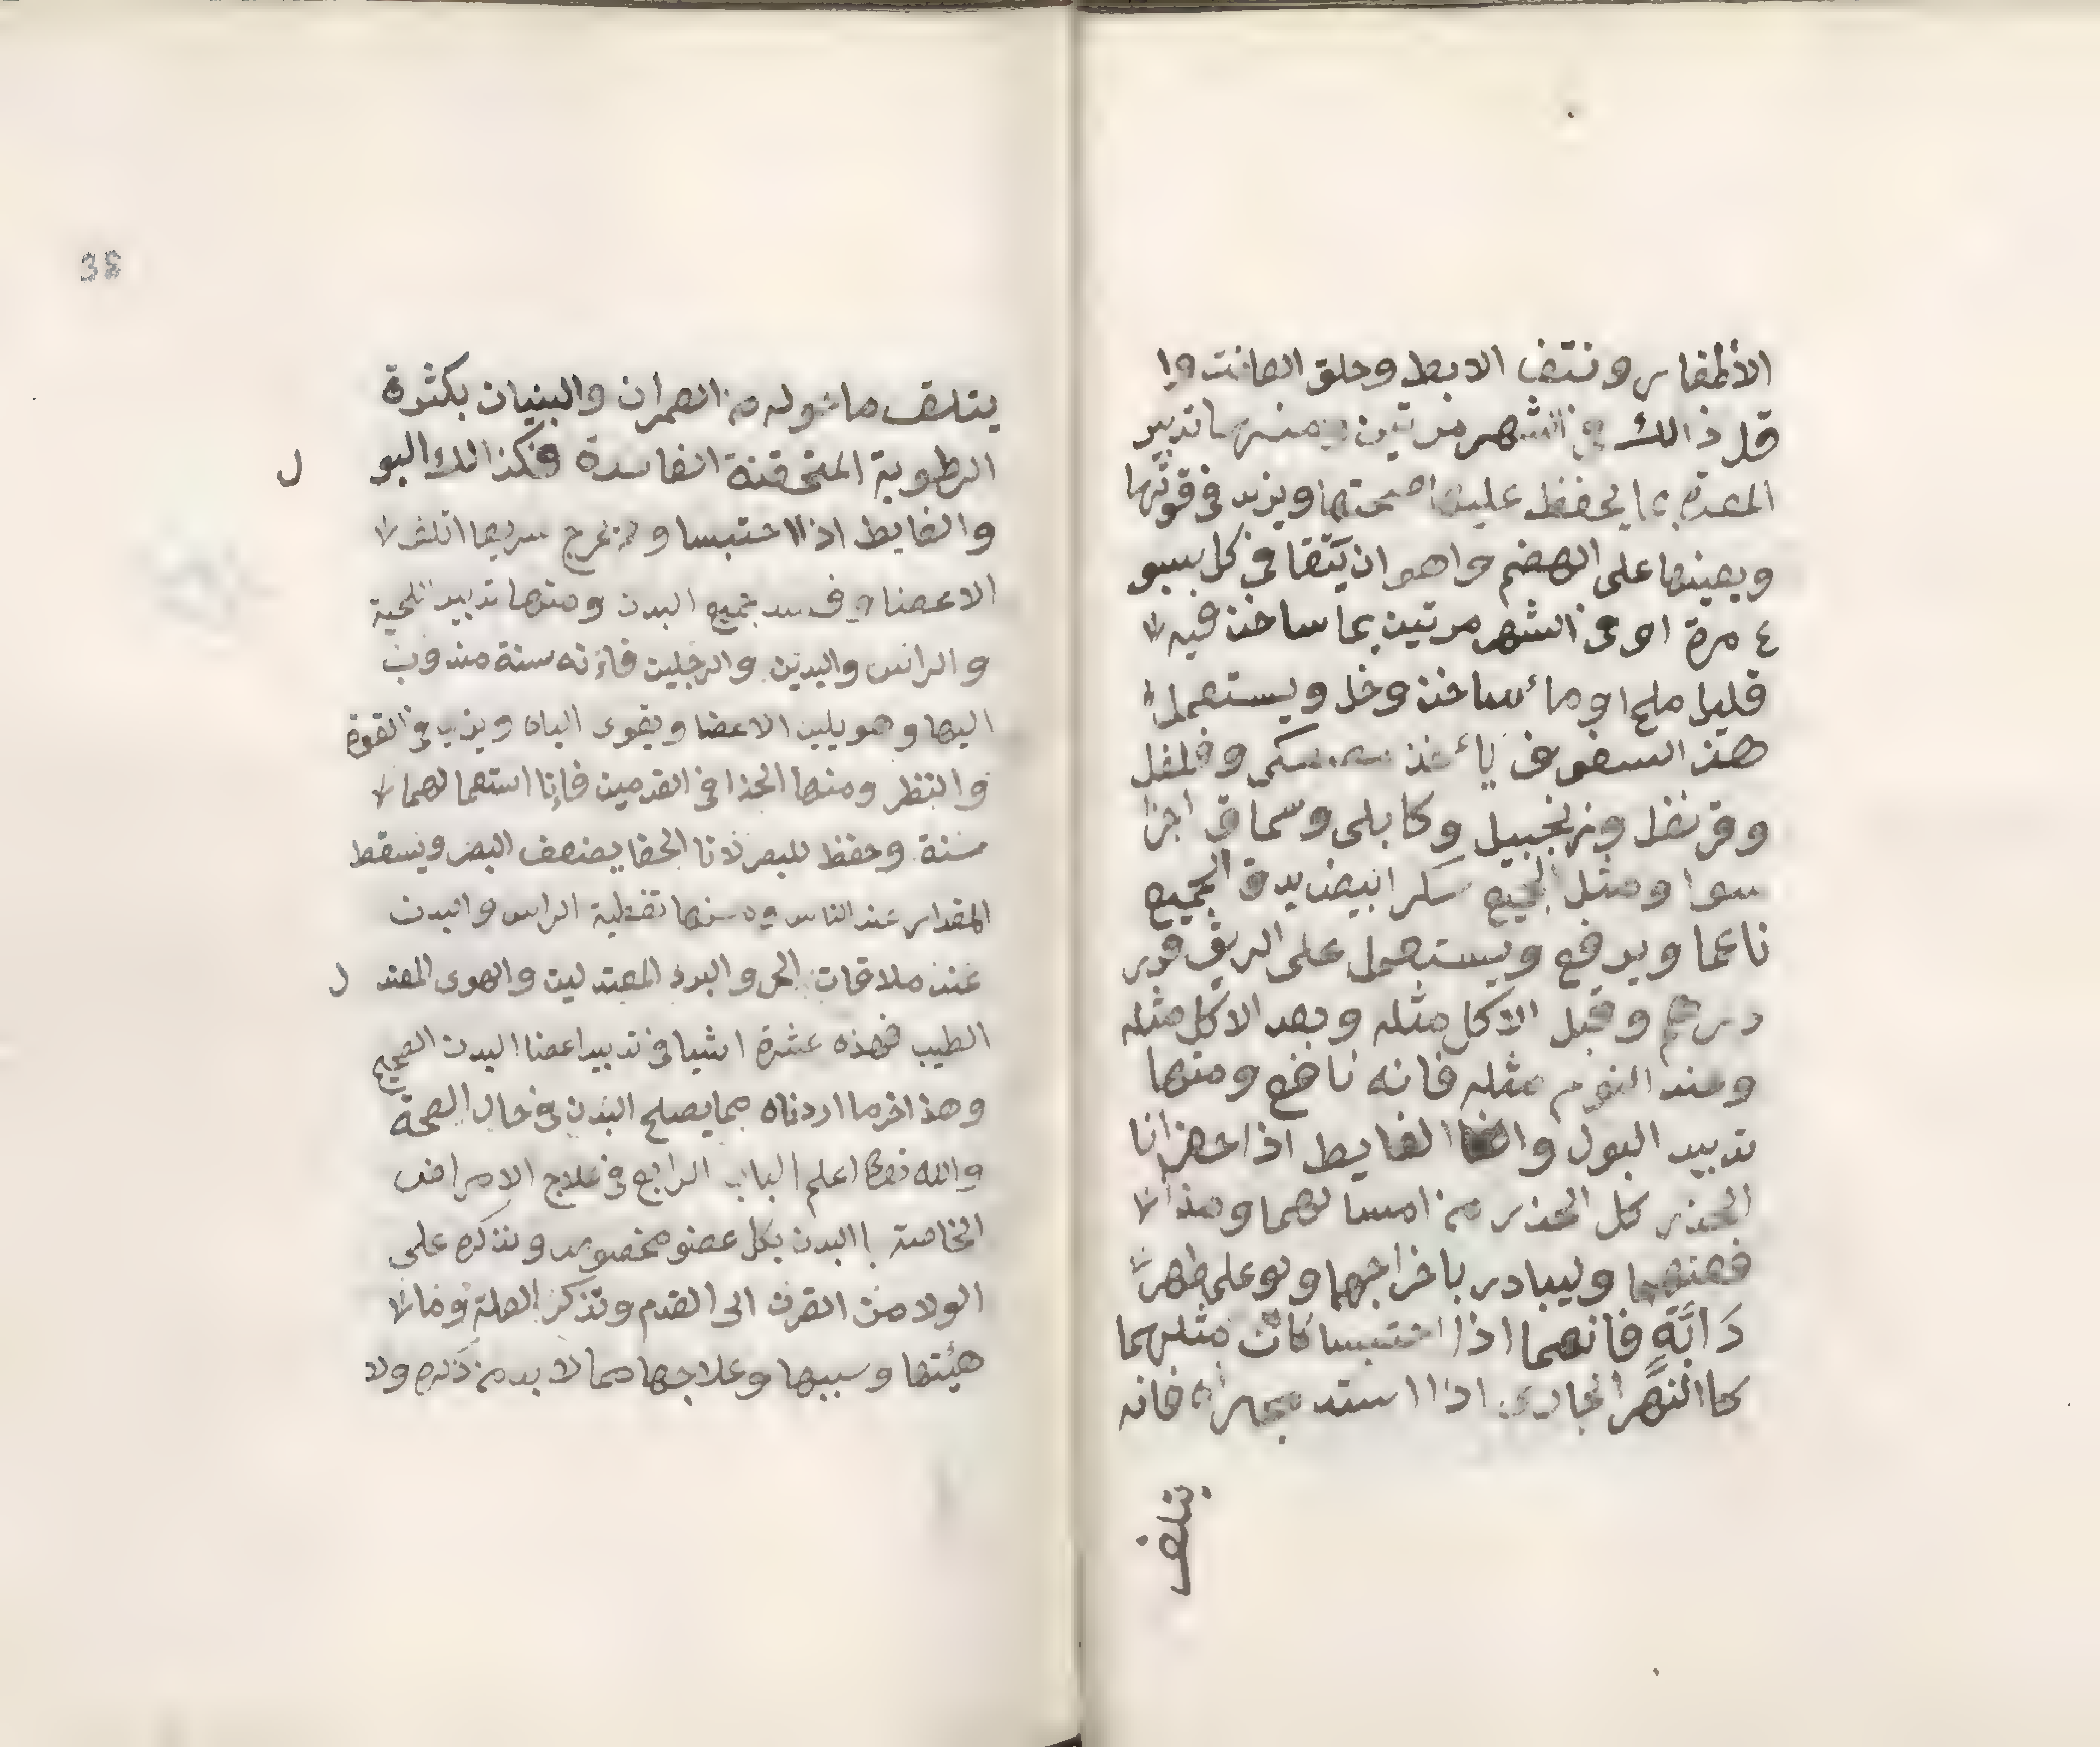 الأظفار ونتف الابط وحلق العانت وا
قل ذالك في الشهر مرتين ومنها تدبير
المعدة بما يحفظ عليها صحتها ويزيد في قوتها
ويعينها على الهضم واهو ان يتقا في كل
٤ مرة او في الشهر مرتين بما ساخن فيه
قليل ملح او مائ ساخن وخل ويستعمل
هذ السفوف يائخذ وفلفل
وقرنفل وزنجبيل وكابلي وسماق اجزا
سوا ومثل الجميع سكر ابيض يدق الجميع
ناعما ويرفع ويستعمل على الريق قدر
درهم وقبل الاكل مثله وبعد الاكل مثله
وعند النوم مثله فانه نافع ومنها
تدبير البول والغايط اذا حضرانا
الحذر كل الحذر من امساكهما ومدا
فعتهما وليبادر باخراجهما ولو على ظهر
دَابَّةٍ فانهما اذا احتبسا كان مثلهما
كاالنهر الجاري اذا استد مجراه فانه
يتلف
38
يتلف ما حوله من العمران والبنيان بكثرة
الرطوبة المنحقنة الفاسدة فكذالك البو
ل
والغايط اذا احتبسا و خرج سريعا اتلف
الاعضا وفسد جميع البدن ومنها تدبير اللحية
والراس واليدين والرجلين فاءنه سنة مندوب
اليها وهو يلين الاعضا ويقوى الباه ويزيد في القوة
والنظر ومنها الحذا في القدمين فاءنا استعمالهما
سنة وحفظ للبصر لانا الحفا يضعف البصر ويسقط
المقدار عند الناس ومنها تغطية الراس والبدن
عند ملاقات الحر والبرد المعتدلين والهوى المعتد
ل
الطيب فهذه عشرة اشيا في تدبير اعضا البدن الصحيح
وهذ اخر ما اردناه مما يصلح البدن في حال الصحة
والله تعالى اعلم الباب الرابع في علاج الامراض
الخاصة باالبدن بكل عضو مخصوص ونذكره على
الولا من القرن الى القدم ونذكر العلة وما
هيئتها وسببها وعلاجها مما لا بد من ذكره ولا